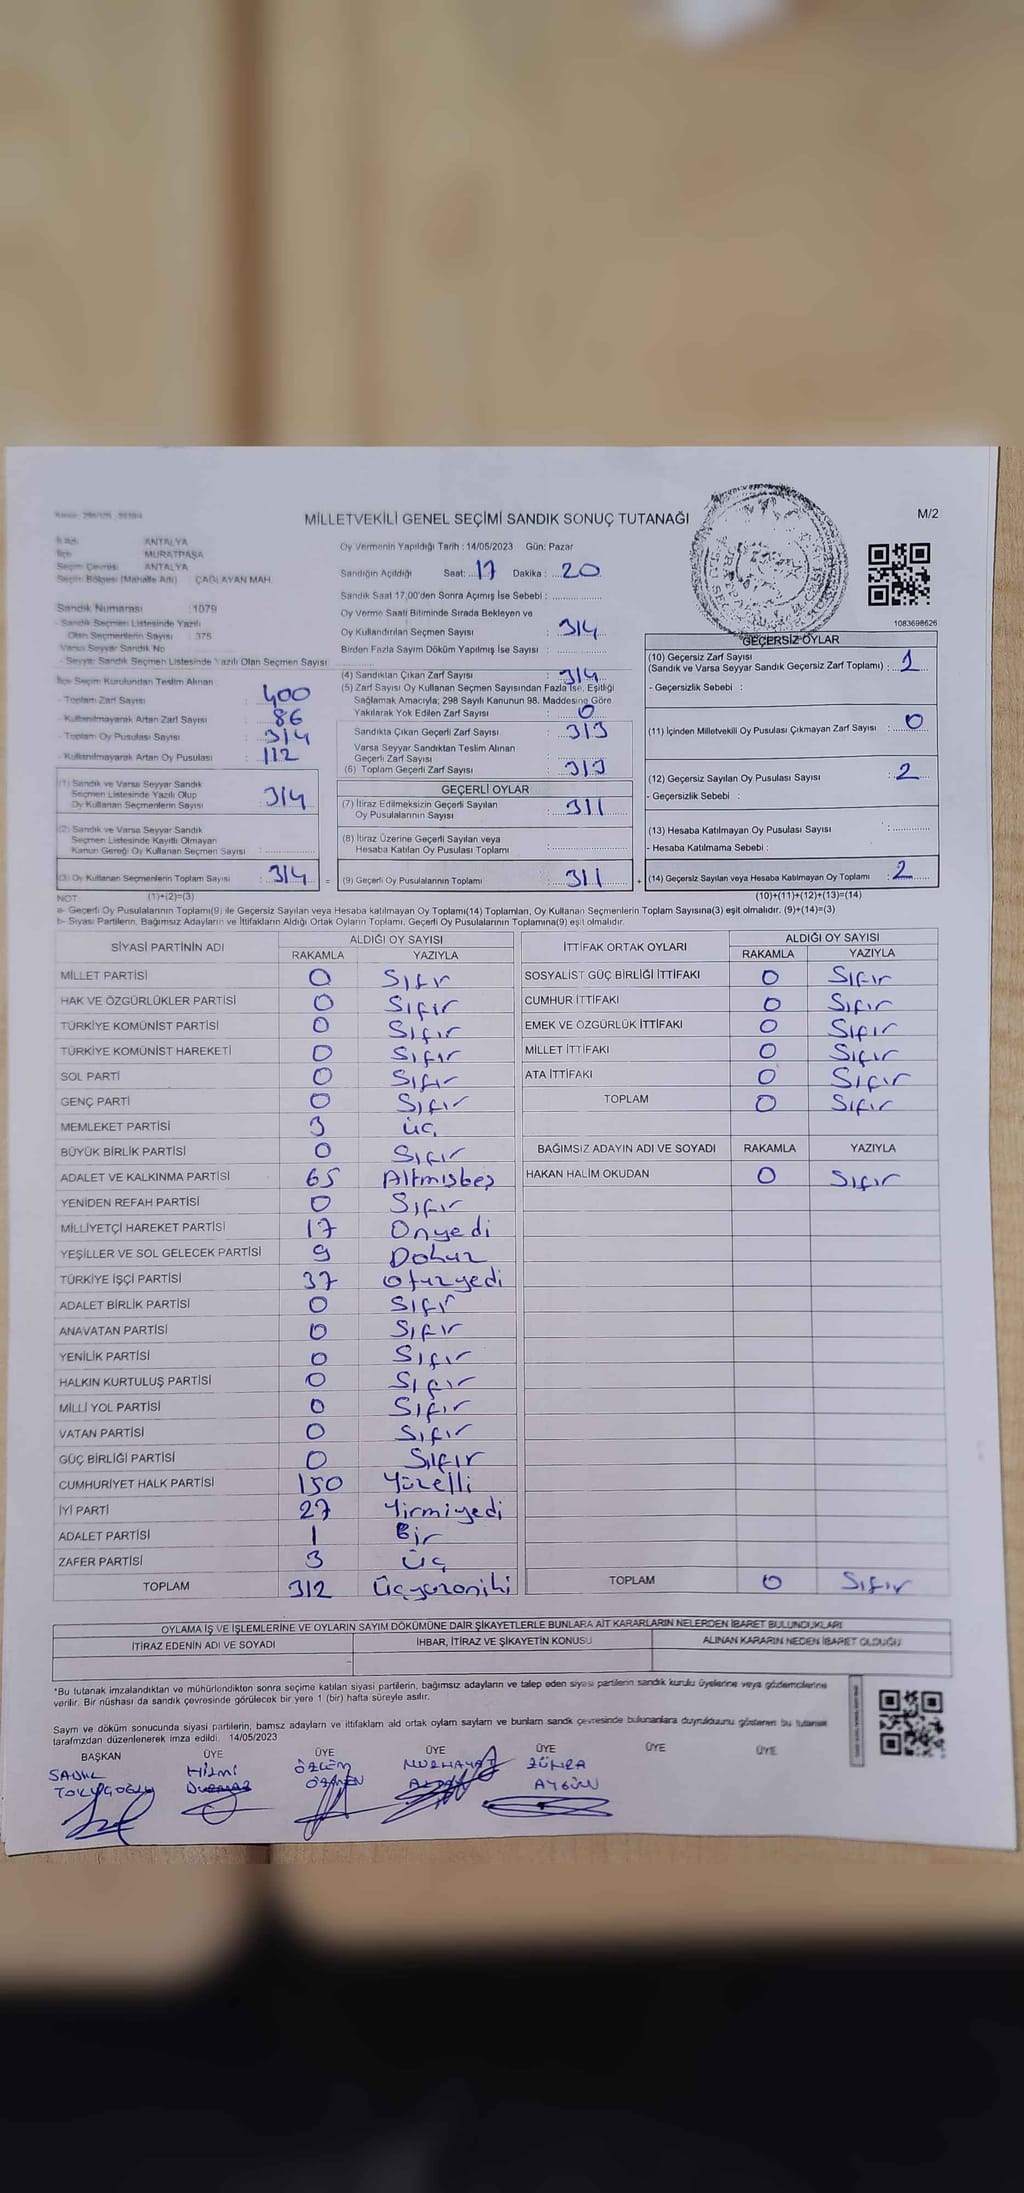 MİLLETVEKİLİ GENEL SEÇİMİ SANDIK SONUÇ TUTANAĞI
M/2
ANTALYA
MURATPAŞA
Seçim Çevresi ANTALYA
Seçim Bölgesi (Mahalle Adı) ÇAĞLAYAN MAH.
Sandık Numarası : 1079
- Sandık Seçmen Listesinde Yazılı
Olan Seçmenlerin Sayısı : 375
Varsa Seyyar Sandık No
- Seyyar Sandık Seçmen Listesinde Yazılı Olan Seçmen Sayısı
İlçe Seçim Kurulundan Teslim Alınan
- Toplam Zarf Sayısı : 400
- Kullanılmayarak Artan Zarf Sayısı : 86
- Toplam Oy Pusulası Sayısı : 314
- Kullanılmayarak Artan Oy Pusulası : 112
(1) Sandık ve Varsa Seyyar Sandık
Seçmen Listesinde Yazılı Olup
Oy Kullanan Seçmenlerin Sayısı : 314
(2) Sandık ve Varsa Seyyar Sandık
Seçmen Listesinde Kayıtlı Olmayan
Kanun Gereği Oy Kullanan Seçmen Sayısı :
(3) Oy Kullanan Seçmenlerin Toplam Sayısı : 314 =
Oy Vermenin Yapıldığı Tarih : 14/05/2023 Gün: Pazar
Sandığın Açıldığı Saat: 17 Dakika : 20
Sandık Saat 17.00'den Sonra Açımış İse Sebebi :
Oy Verme Saati Bitiminde Sırada Bekleyen ve
Oy Kullandırılan Seçmen Sayısı : 314
Birden Fazla Sayım Döküm Yapılmış İse Sayısı :
(4) Sandıktan Çıkan Zarf Sayısı : 314
(5) Zarf Sayısı Oy Kullanan Seçmen Sayısından Fazla İse, Eşitliği
Sağlamak Amacıyla; 298 Sayılı Kanunun 98. Maddesine Göre
Yakılarak Yok Edilen Zarf Sayısı : 0
Sandıkta Çıkan Geçerli Zarf Sayısı : 313
Varsa Seyyar Sandıktan Teslim Alınan
Geçerli Zarf Sayısı
(6) Toplam Geçerli Zarf Sayısı : 313
GEÇERLİ OYLAR
(7) İtiraz Edilmeksizin Geçerli Sayılan
Oy Pusulasının Sayısı : 311
(8) İtiraz Üzerine Geçerli Sayılan veya
Hesaba Katılan Oy Pusulası Toplamı :
(9) Geçerli Oy Pusulalarının Toplamı : 311 +
1083698626
GEÇERSİZ OYLAR
(10) Geçersiz Zarf Sayısı
(Sandık ve Varsa Seyyar Sandık Geçersiz Zarf Toplamı) : 1
- Geçersizlik Sebebi :
(11) İçinden Milletvekili Oy Pusulası Çıkmayan Zarf Sayısı : 0
(12) Geçersiz Sayılan Oy Pusulası Sayısı : 2
- Geçersizlik Sebebi :
(13) Hesaba Katılmayan Oy Pusulası Sayısı :
- Hesaba Katılmama Sebebi :
(14) Geçersiz Sayılan veya Hesaba Katılmayan Oy Toplamı : 2
NOT: (1)+(2)=(3) (10)+(11)+(12)+(13)=(14)
a- Geçerli Oy Pusulalarının Toplamı(9) ile Geçersiz Sayılan veya Hesaba katılmayan Oy Toplamı(14) Toplamları, Oy Kullanan Seçmenlerin Toplam Sayısına(3) eşit olmalıdır. (9)+(14)=(3)
b- Siyasi Partilerin, Bağımsız Adayların ve İttifakların Aldığı Ortak Oyların Toplamı, Geçerli Oy Pusulalarının Toplamına(9) eşit olmalıdır.
SİYASİ PARTİNİN ADI ALDIĞI OY SAYISI
RAKAMLA YAZIYLA
MİLLET PARTİSİ 0 Sıfır
HAK VE ÖZGÜRLÜKLER PARTİSİ 0 Sıfır
TÜRKİYE KOMÜNİST PARTİSİ 0 Sıfır
TÜRKİYE KOMÜNİST HAREKETİ 0 Sıfır
SOL PARTİ 0 Sıfır
GENÇ PARTİ 0 Sıfır
MEMLEKET PARTİSİ 3 üç
BÜYÜK BİRLİK PARTİSİ 0 Sıfır
ADALET VE KALKINMA PARTİSİ 65 Altmışbeş
YENİDEN REFAH PARTİSİ 0 Sıfır
MİLLİYETÇİ HAREKET PARTİSİ 17 Onyedi
YEŞİLLER VE SOL GELECEK PARTİSİ 9 Dokuz
TÜRKİYE İŞÇİ PARTİSİ 37 otuzyedi
ADALET BİRLİK PARTİSİ 0 Sıfır
ANAVATAN PARTİSİ 0 Sıfır
YENİLİK PARTİSİ 0 Sıfır
HALKIN KURTULUŞ PARTİSİ 0 Sıfır
MİLLİ YOL PARTİSİ 0 Sıfır
VATAN PARTİSİ 0 Sıfır
GÜÇ BİRLİĞİ PARTİSİ 0 Sıfır
CUMHURİYET HALK PARTİSİ 150 Yüzelli
İYİ PARTİ 27 Yirmiyedi
ADALET PARTİSİ 1 Bir
ZAFER PARTİSİ 3 üç
TOPLAM 312 Üçyüzoniki
İTTİFAK ORTAK OYLARI ALDIĞI OY SAYISI
RAKAMLA YAZIYLA
SOSYALİST GÜÇ BİRLİĞİ İTTİFAKI 0 Sıfır
CUMHUR İTTİFAKI 0 Sıfır
EMEK VE ÖZGÜRLÜK İTTİFAKI 0 Sıfır
MİLLET İTTİFAKI 0 Sıfır
ATA İTTİFAKI 0 Sıfır
TOPLAM 0 Sıfır
BAĞIMSIZ ADAYIN ADI VE SOYADI RAKAMLA YAZIYLA
HAKAN HALİM OKUDAN 0 Sıfır
TOPLAM 0 Sıfır
OYLAMA İŞ VE İŞLEMLERİNE VE OYLARIN SAYIM DÖKÜMÜNE DAİR ŞİKAYETLERLE BUNLARA AİT KARARLARIN NELERDEN İBARET BULUNDUKLARI
İTİRAZ EDENİN ADI VE SOYADI İHBAR, İTİRAZ VE ŞİKAYETİN KONUSU ALINAN KARARIN NEDEN İBARET OLDUĞU
*Bu tutanak imzalandıktan ve mühürlendikten sonra seçime katılan siyasi partilerin, bağımsız adayların ve talep eden siyasi partilerin sandık kurulu üyelerine veya gözlemcilerine
verilir. Bir nüshası da sandık çevresinde görülecek bir yere 1 (bir) hafta süreyle asılır.
Sayım ve döküm sonucunda siyasi partilerin, bamsz adayların ve ittifakların ald ortak oyların sayların ve bunların sandk çevresinde bulunanlara duyrulduunu gösteren bu tutanak
tarafmzdan düzenlenerek imza edildi. 14/05/2023
BAŞKAN ÜYE ÜYE ÜYE ÜYE ÜYE ÜYE
HİLMİ ÖZLEM NURHAYAT ZÜHRA
ÖZMEN AYGÜN